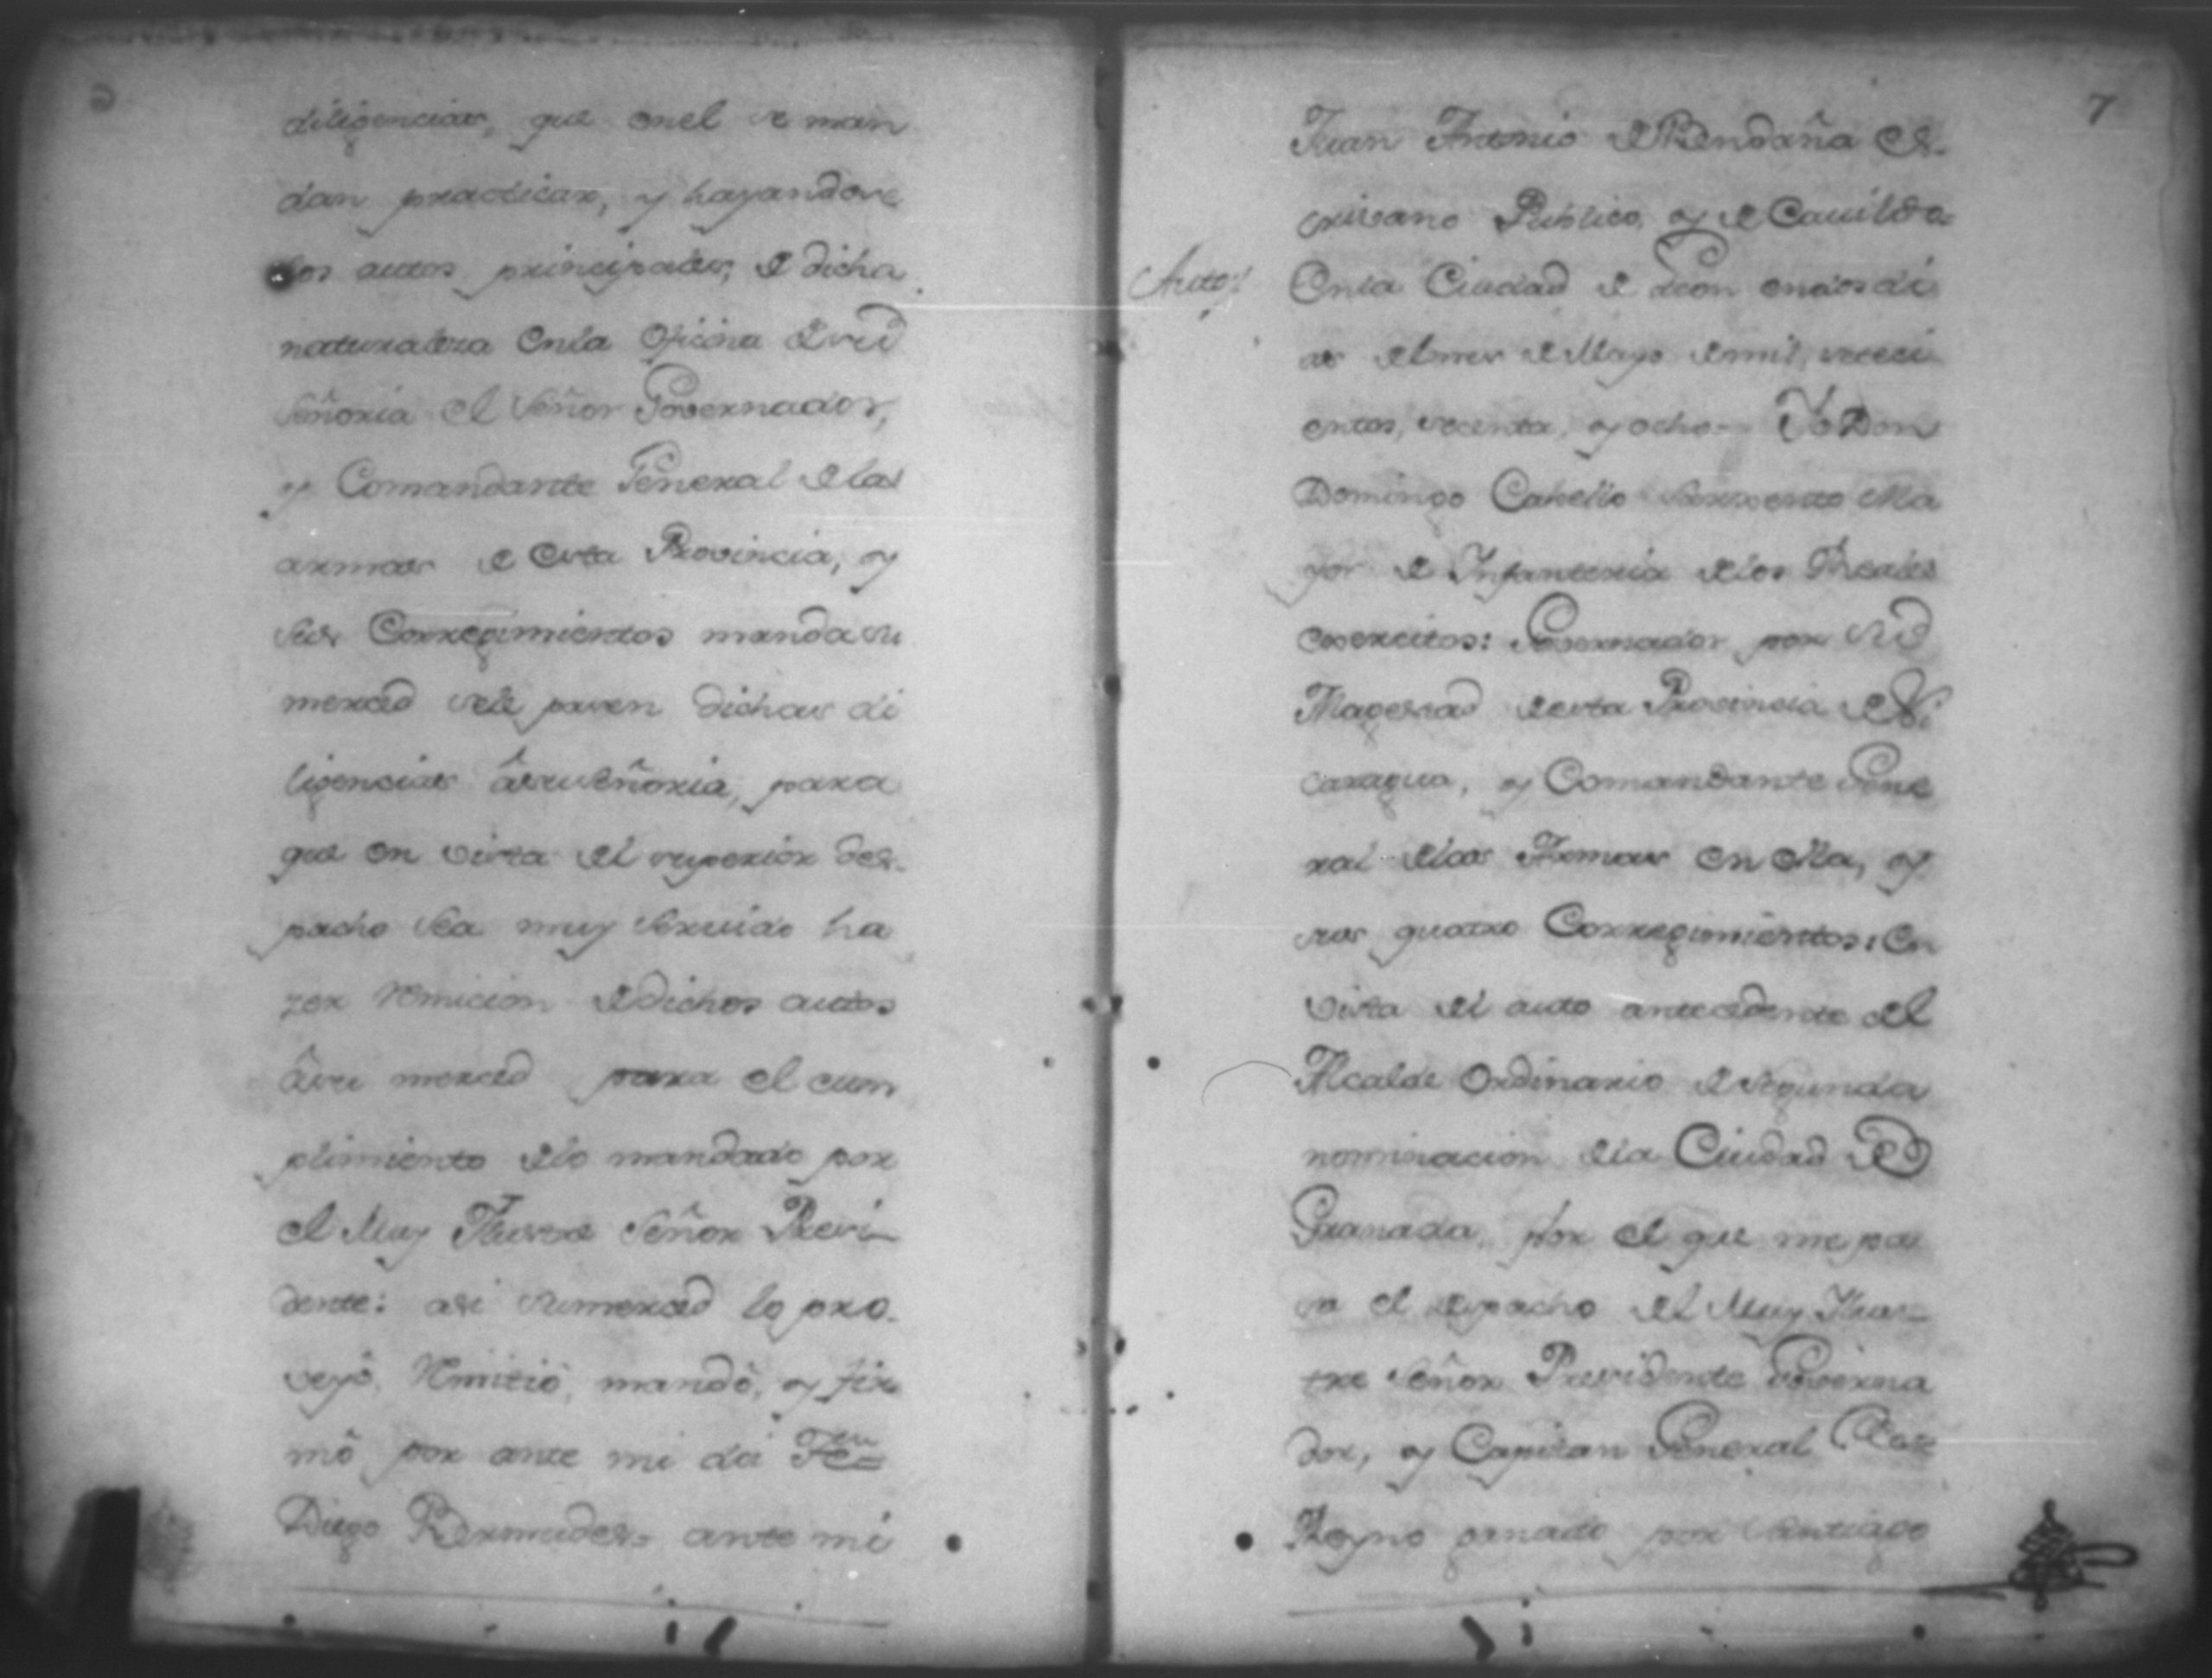 diligencias, que enel se man
dan practicar, y hayandose
los autos principales, de dicha
naturaleza enla oficina de su
Señoria el Señor Governador,
y Comandante General de las
armas de esta Provincia, y
sus Corregimientos manda su
merced se le pasen dichas di
ligencias â su Señoria, para
que en vista del superior des-
pacho sea muy servido ha
zer remicion de dichos autos
â su merced para el cum
plimiento de lo mandado por
el Muy Ilustre Señor Presi-
dente: asi su merced lo pro-
veyô, remitiô, mandô, y fir
mô por ante mi doi Fee=
Diego Bermudes= ante mi
7
Juan Antonio de Bendaña Es-
crivano Publico, y de Cavildo=
Auto
Enla Ciudad de Leon endos di
as del mes de Mayo de mil, seteci
entos, setenta, y ocho= Yo Don
Domingo Cabello Sarxento Ma
yor de Infanteria de los Reales
exercitos: Governador por su
Magestad de esta Provincia de Ni
caragua, y Comandante Gene
ral de las Armas en ella, y
sus quatro Corregimientos: En
vista del auto antecedente del
Alcalde Ordinario de segunda
nominacion de la Ciudad de
Granada, por el que me pa
sa el despacho del Muy Ilus-
tre Señor Presidente Governa
dor, y Capitan General deeste
Reyno ganado por Santiago